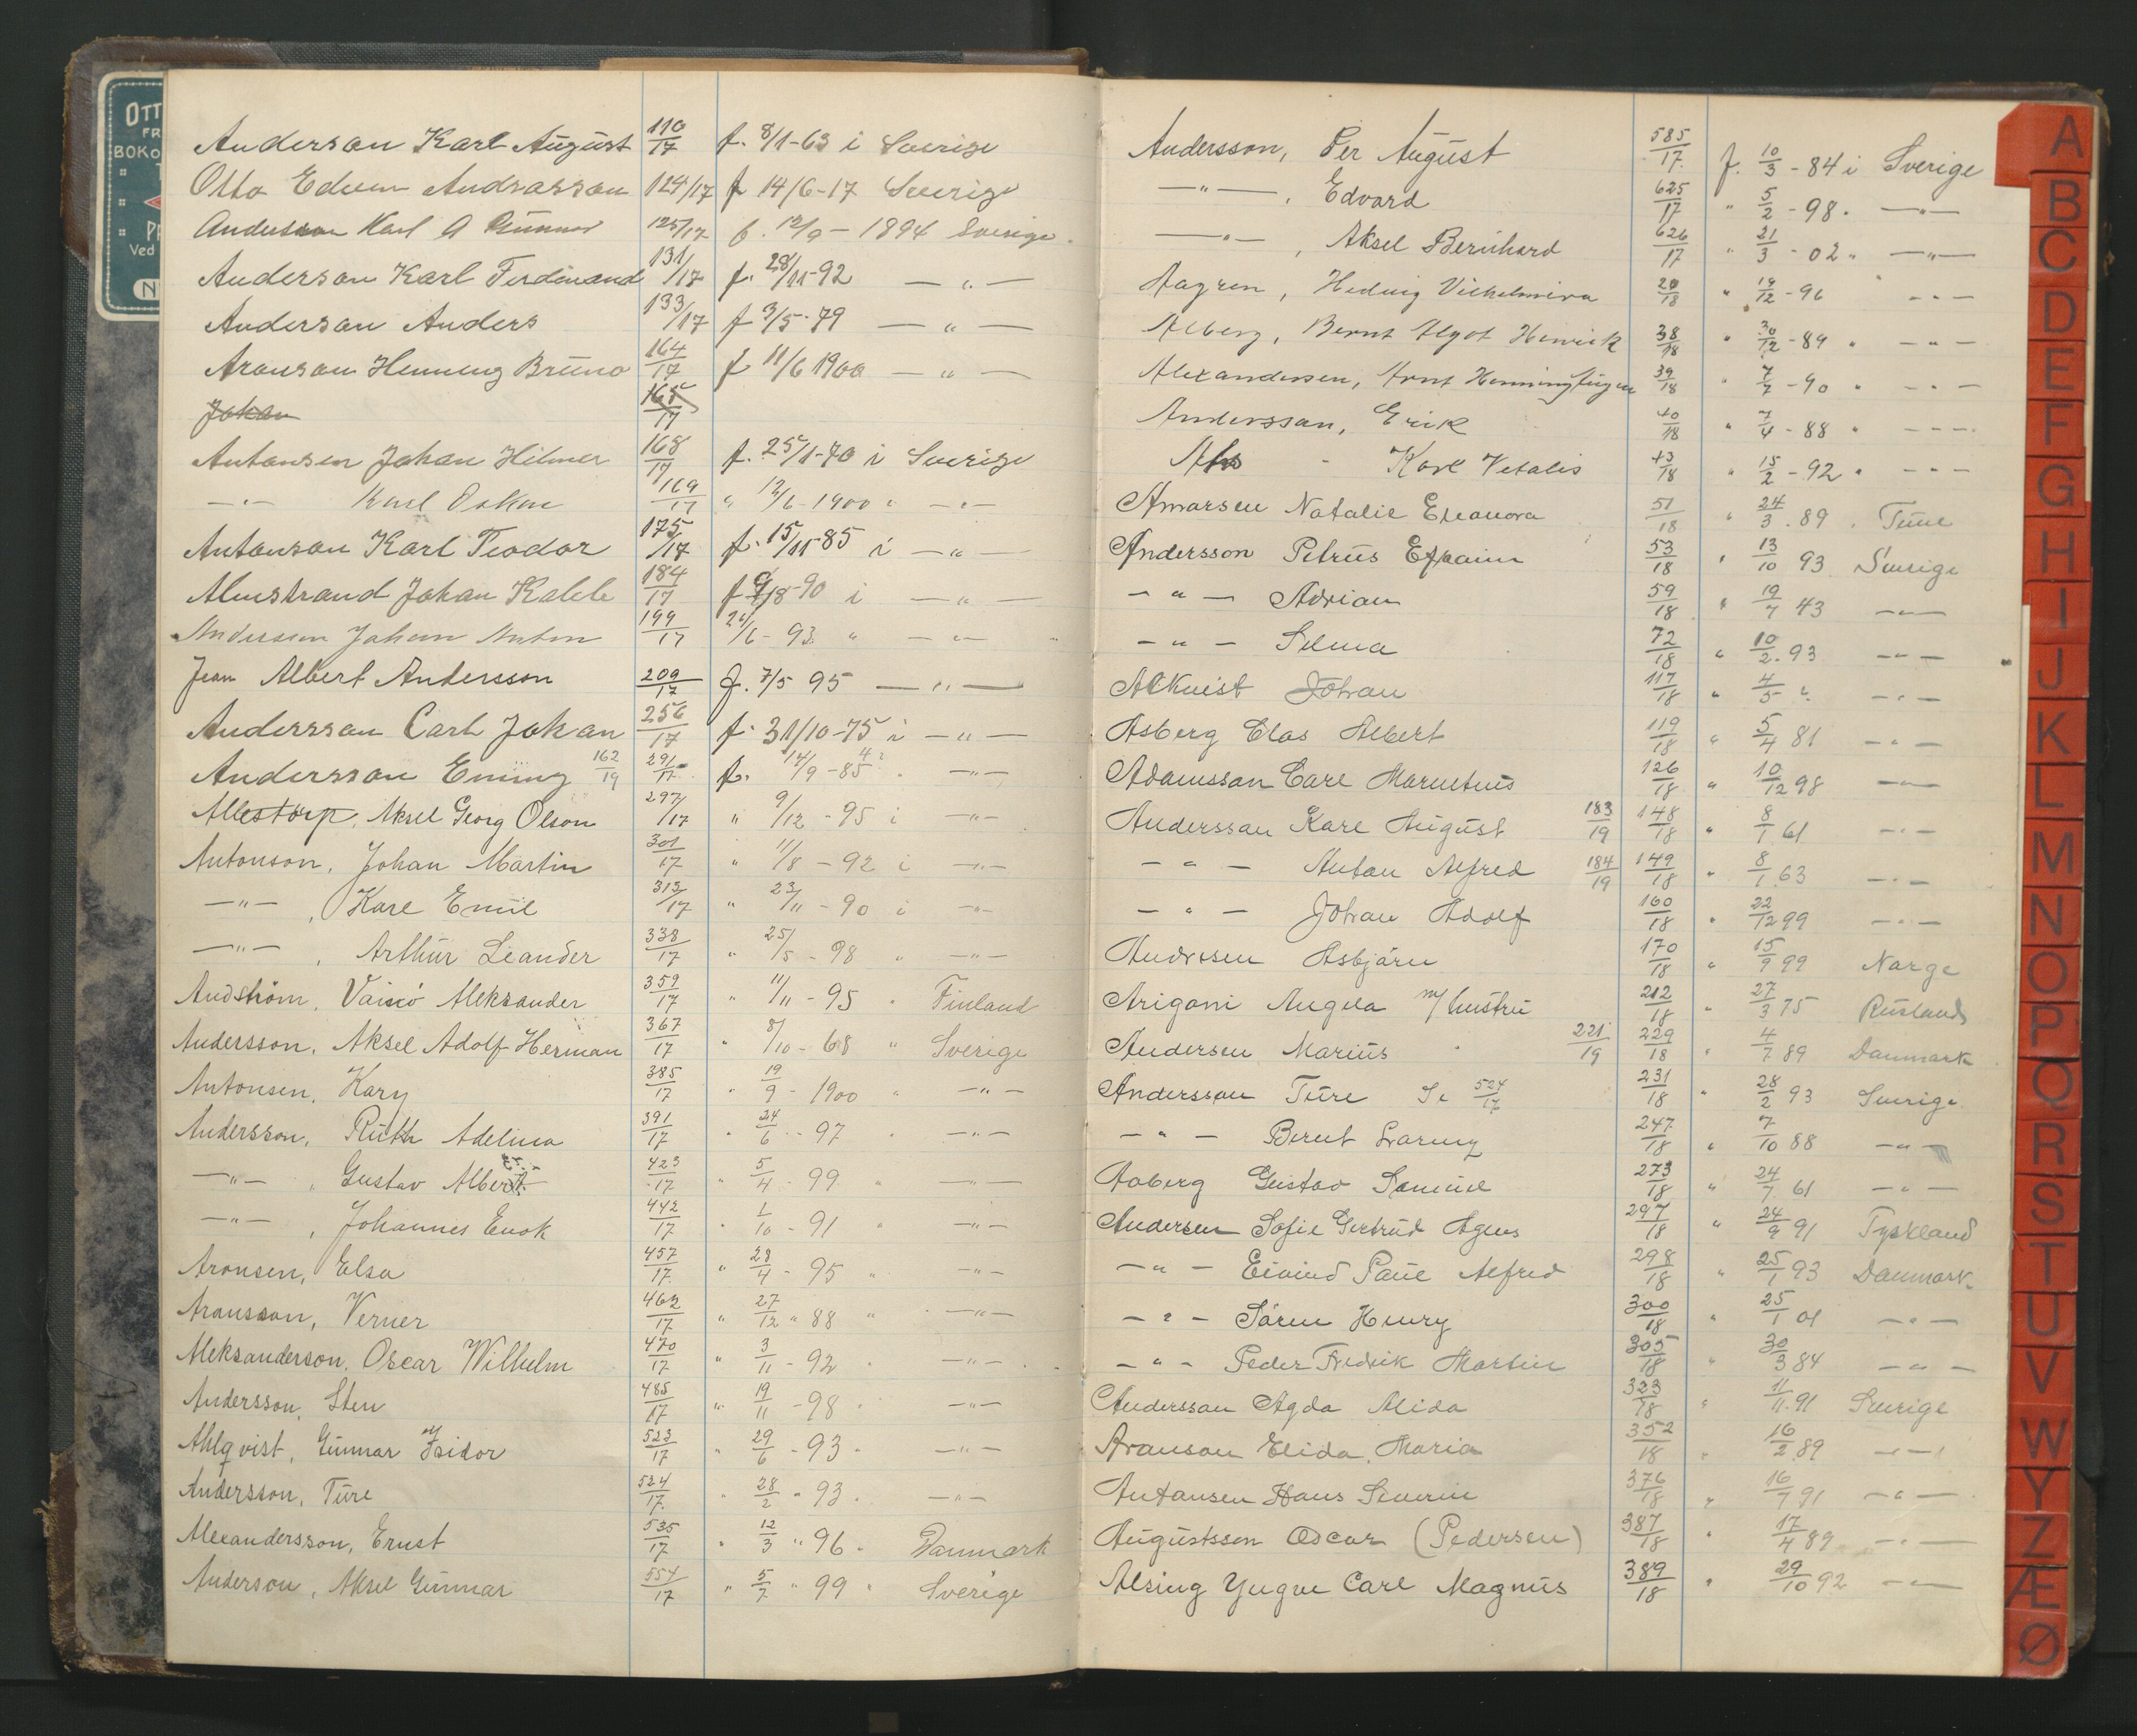 OTT
FR
BOKO
" T
" PR
Ved
N
Anderson Karl August 110/17 f. 8/1-63 i Sverige
Otto Edvin Andreasson 124/17 f 14/6-17 Sverige
Anderson Karl A Gunnar 125/17 f. 12/9 - 1894 Sverige.
Anderson Karl Ferdinand 131/17 f. 28/11-92 — " —
Anderson Anders 133/17 f 3/5-79 — " —
Aronson Henning Bruno 164/17 f 11/6 1900 — " —
Johan 165/17
Antonsen Johan Hilmer 168/17 f. 25/1-70 i Sverige
— " — Karl Oskar 169/17 " 12/6-1900 " — " —
Antonson Karl Teodor 175/17 f. 15/11-85 i — " —
Almstrand Johan Kaleb 184/17 f 9/8-90 i — " —
Anderson Johan Anton 199/17 24/6-93 " — " —
Jean Albert Andersson 209/17 f. 7/5 95 — " —
Andersson Carl Johan 256/17 f. 31/10-75 i — " —
Andersson Emmy 162/19 291/17 f. 14/9-85 4? — " —
Allestorp, Aksel Georg Olson 297/17 " 9/12-95 i — " —
Antonson, Johan Martin 301/17 " 11/8-92 i — " —
— " — , Karl Emil 313/17 " 23/11-90 i — " —
— " — , Arthur Leander 338/17 " 25/5-98 " — " —
Andström, Aleksander 359/17 " 11/11-95 " Finland
Andersson, Aksel Adolf Herman 367/17 " 8/10-68 " Sverige
Antonsen, Kary 385/17 " 19/9-1900 " — " —
Andersson, Ruth Adelina 391/17 " 24/6-97 " — " —
— " — , Gustav Albert 423/17 " 5/4-99 " — " —
— " — , Johannes Enok 442/17 " 1/10-91 " — " —
Aronsen, Elsa 457/17 " 28/4-95 " — " —
Aronsson, Verner 462/17 " 27/12 " 88 " — " —
Aleksanderson, Oscar Wilhelm 470/17 " 3/11-92 " — " —
Andersson, Sten 485/17 " 19/11-98 " — " —
Ahlqvist, Gunnar Isidor 523/17 " 29/6-93 " — " —
Andersson, Ture 524/17 " 28/2 " 93 " — " —
Alexandersson, Ernst 535/17 " 12/3 " 96 " Danmark
Anderson, Aksel Gunnar 554/17 " 5/7 " 99 " Sverige
Andersson, Per August 585/17 f. 10/3-84 i Sverige
— " — , Edvard 625/17 " 5/2-98 " — " —
— " — , Aksel Bernhard 626/17 " 21/3-02 " — " —
Aagren, Hedvig Vilhelmina 20/18 " 14/12-96 " — " —
Alberg, Bernt Algot Henrick 38/18 " 30/12-89 " — " —
Alexandersen, Arnt Henning 39/18 " 7/7-90 " — " —
Andersson, Erik 40/18 " 7/4-88 " — " —
- Karl Vitalis 43/18 " 15/2-92 " — " —
Amarsen Natalie Eleonora 51/18 " 24/3 . 89 . Tune
Andersson Petrus Efraim 53/18 " 13/10 93 Sverige
— " — Adrian 59/18 " 19/7 43 — " —
— " — Selma 72/18 " 10/2 . 93 — " —
Alkvist Johan 117/18 " 4/5 ? — " —
Asberg Clas Albert 119/18 " 5/4 81 — " —
Adamsson Carl 126/18 " 10/12 98 — " —
Andersson Karl August 183/19 148/18 " 8/1 61 — " —
— " — Anton Alfred 184/19 149/18 " 8/1 . 63 — " —
— " — Johan Adolf 160/18 " 22/12 99 — " —
Andresen Asbjörn 170/18 " 15/9 99 Norge
Arigoni Angela m/ hustru 212/18 " 27/3 75 Rusland
Andersen Marius 221/19 229/18 " 4/7 89 Danmark
Andersson Ture Se 524/17 231/18 " 28/2 93 Sverige
— " — Bernt 247/18 " 7/10 88 — " —
Aaberg Gustav Samuel 273/18 " 24/7 61 — " —
Andersen Sofie Gertrud Agnes 297/18 " 24/9 91 Tyskland
— " — Eivind Paul Alfred 298/18 " 25/1 93 Danmark
— " — Sören Henry 300/18 " 25/1 01 — " —
— " — Peder Fredrik Martin 305/18 " 30/3 84 — " —
Andersson Agda Alida 323/18 " 11/11 . 91 Sverige
Aronson Elida Maria 352/18 " 16/2 89 — " —
Antonsen Hans Severin 376/18 " 16/7 91 — " —
Augustsson Oscar (Pedersen) 387/18 " 17/4 89 — " —
Alsing Yngve Carl Magnus 389/18 " 29/10 92 — " —
A
B
C
D
E
F
G
H
I
J
K
L
M
N
O
P
Q
R
S
T
U
V
W
Y
Z
Æ
Ø